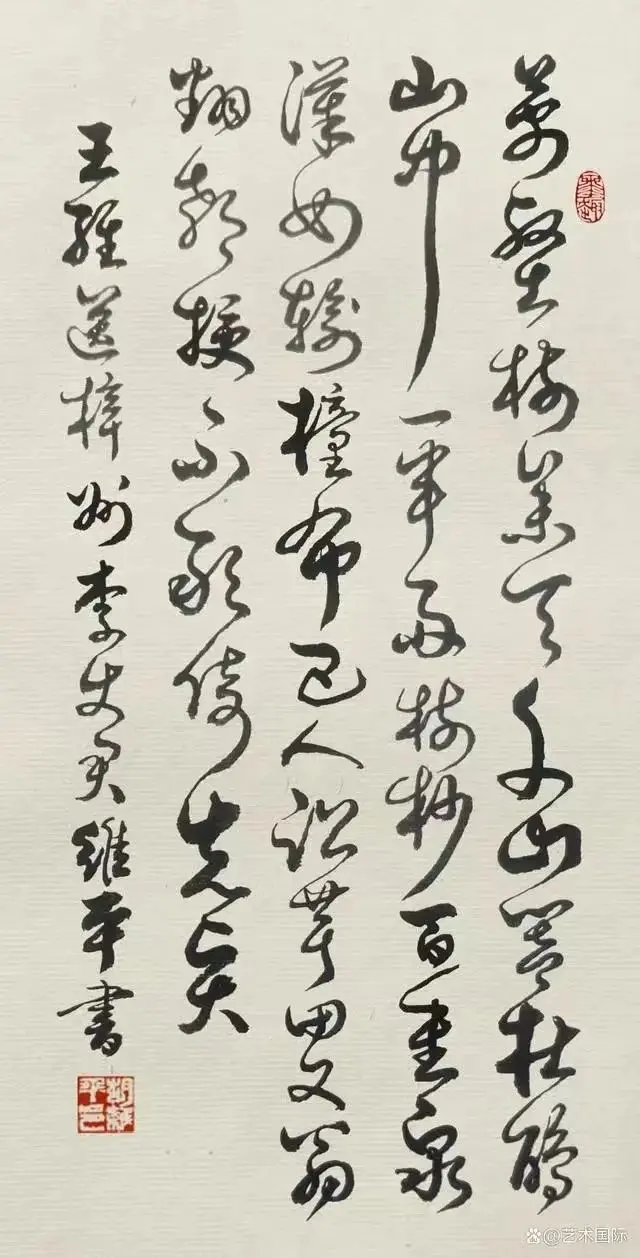 萬壑樹參天千山響杜鵑
山中一半雨樹杪百重泉
漢女輸橦布巴人訟芋田文翁
翻教授不敢倚先賢
王維送梓州李使君維平書
胡維平印
@艺术国际